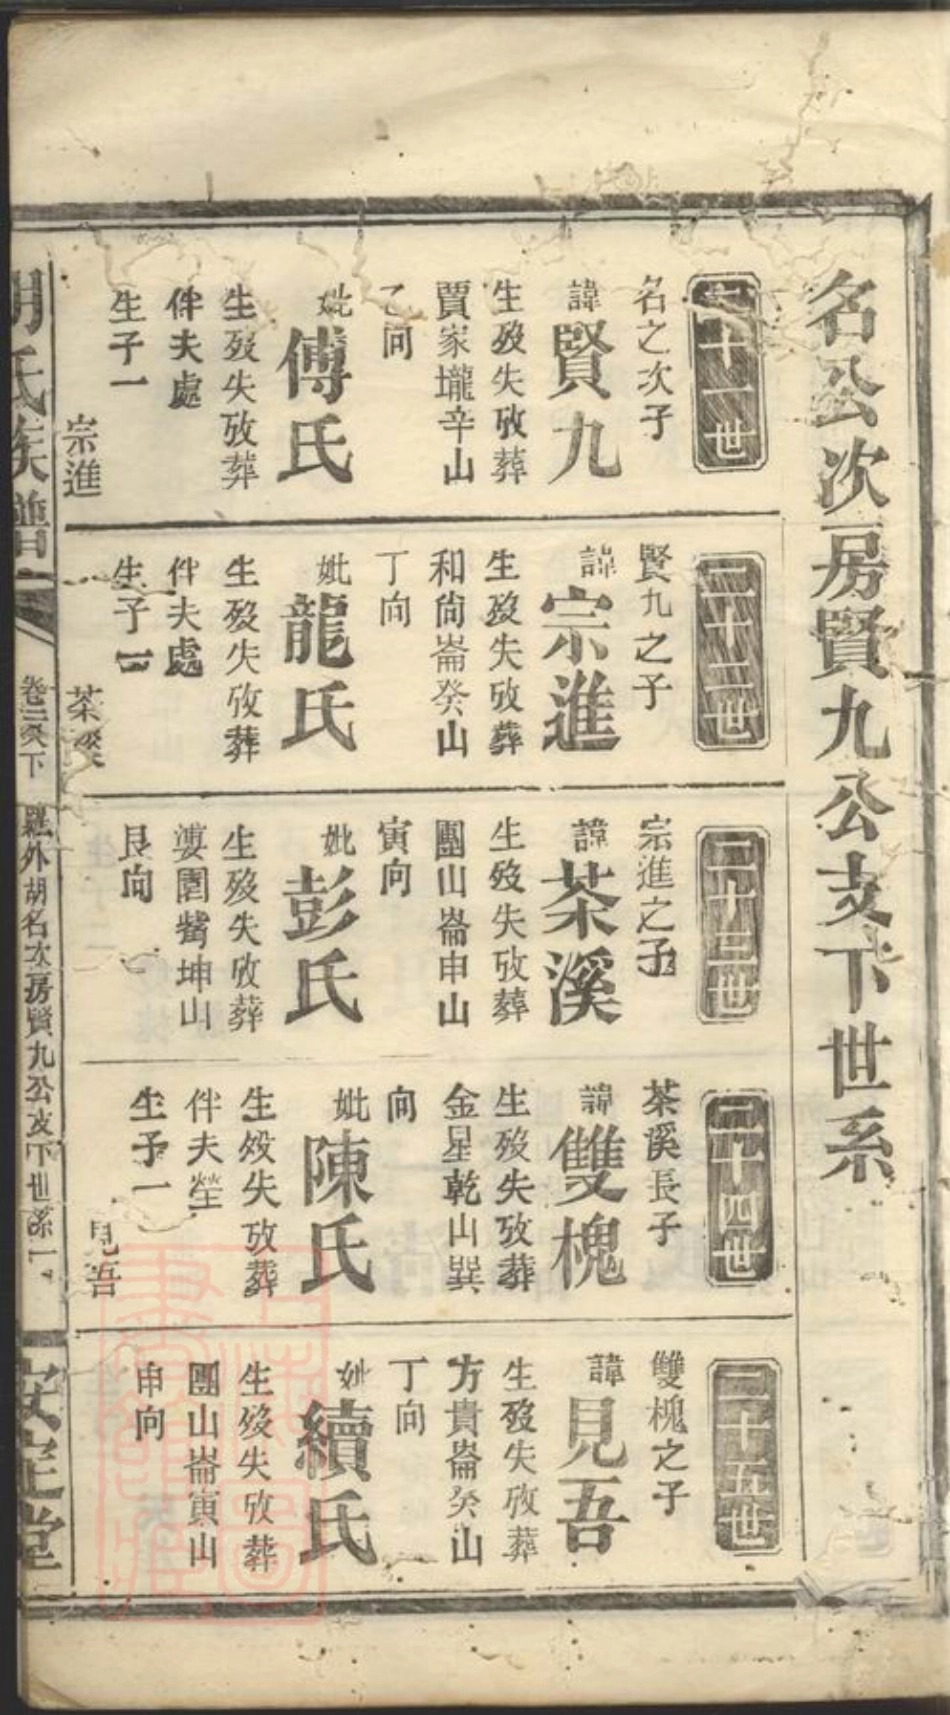 名公次房賢九公支下世系
二十一世
名之次子
諱賢九
生歿失攷葬
賈家壠辛山
乙向
妣傅氏
生歿失攷葬
伴夫處
生子一
宗進
二十二世
賢九之子
諱宗進
生歿失攷葬
和尙崙癸山
丁向
妣龍氏
生歿失攷葬
伴夫處
生子一
茶溪
二十三世
宗進之子
諱茶溪
生歿失攷葬
團山崙申山
寅向
妣彭氏
生歿失攷葬
坤山
艮向
二十四世
茶溪長子
諱雙槐
生歿失攷葬
金星乾山巽
向
妣陳氏
生歿失攷葬
伴夫塋
生子一
見吾
二十五世
雙槐之子
諱見吾
生歿失攷葬
方貴崙癸山
丁向
妣續氏
生歿失攷葬
團山崙寅山
申向
胡氏族譜
卷三癸下
羅外胡名次房賢九公支下世系一
安定堂